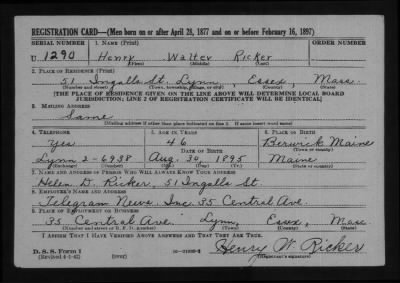 REGISTRATION CARD—(Men born on or after April 28, 1877 and on or before February 16, 1897)
SERIAL NUMBER 1. NAME (Print) ORDER NUMBER
U 1290 Henry Walter Ricker
(First) (Middle) (Last)
2. PLACE OF RESIDENCE (Print)
51 Ingalls St. Lynn, Essex, Mass.
(Number and street) (Town, township, village, or city) (County) (State)
[THE PLACE OF RESIDENCE GIVEN ON THE LINE ABOVE WILL DETERMINE LOCAL BOARD
JURISDICTION; LINE 2 OF REGISTRATION CERTIFICATE WILL BE IDENTICAL]
3. MAILING ADDRESS
Same
[Mailing address if other than place indicated on line 2. If same insert word same]
4. TELEPHONE 5. AGE IN YEARS 6. PLACE OF BIRTH
Yes 46 Berwick Maine
DATE OF BIRTH (Town or county)
Lynn 2-6938 Aug. 30, 1895 Maine
(Exchange) (Number) (Mo.) (Day) (Yr.) (State or country)
7. NAME AND ADDRESS OF PERSON WHO WILL ALWAYS KNOW YOUR ADDRESS
Helen D. Ricker, 51 Ingalls St.
8. EMPLOYER'S NAME AND ADDRESS
Telegram News, Inc. 35 Central Ave.
9. PLACE OF EMPLOYMENT OR BUSINESS
35 Central Ave. Lynn, Essex, Mass
(Number and street or R. F. D. number) (Town) (County) (State)
I AFFIRM THAT I HAVE VERIFIED ABOVE ANSWERS AND THAT THEY ARE TRUE.
D. S. S. Form 1
(Revised 4-1-42) (over) Henry W. Ricker
(Registrant's signature)